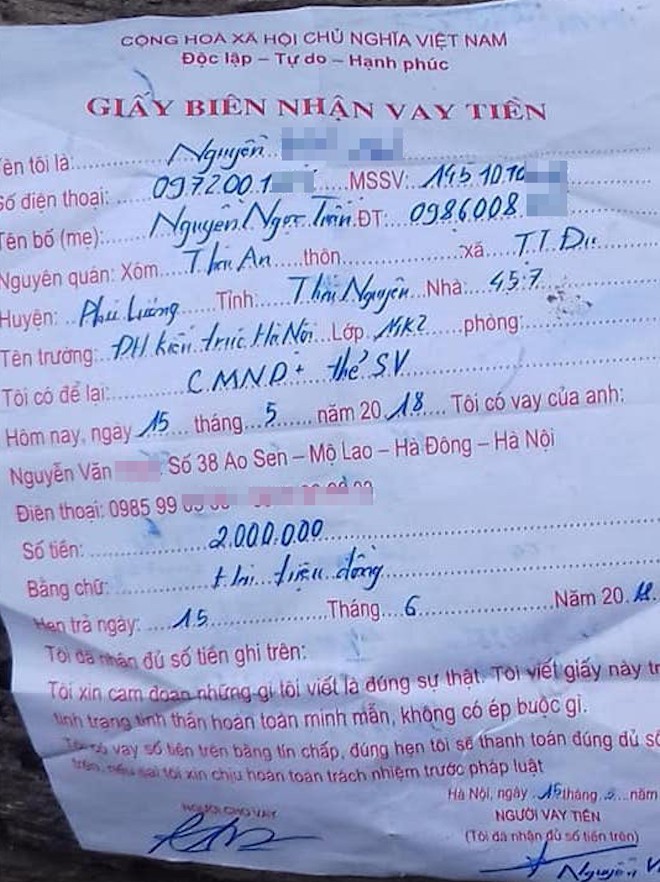 CỘNG HOÀ XÃ HỘI CHỦ NGHĨA VIỆT NAM
Độc lập – Tự do – Hạnh phúc
GIẤY BIÊN NHẬN VAY TIỀN
Tên tôi là: Nguyễn
Số điện thoại: 097200 MSSV: 1451010
Tên bố (mẹ): Nguyễn Ngọc ĐT: 0986008
Nguyên quán: Xóm An thôn xã T.T Đu
Huyện: Phú Lương Tỉnh: Thái Nguyên Nhà: 457
Tên trường: ĐH kiến trúc Hà Nội Lớp phòng:
Tôi có để lại: CMND + thẻ SV
Hôm nay, ngày 15 tháng 5 năm 2018 Tôi có vay của anh:
Nguyễn Văn Số 38 Ao Sen – Mộ Lao – Hà Đông – Hà Nội
Điện thoại: 0985 99
Số tiền: 2.000.000
Bằng chữ: Hai triệu đồng
Hẹn trả ngày: 15 Tháng 6 Năm 2018
Tôi đã nhận đủ số tiền ghi trên:
Tôi xin cam đoan những gì tôi viết là đúng sự thật. Tôi viết giấy này tr
tình trạng tinh thần hoàn toàn minh mẫn, không có ép buộc gì.
Tôi có vay số tiền trên bằng tín chấp, đúng hẹn tôi sẽ thanh toán đúng đủ số
trên, nếu sai tôi xin chịu hoàn toàn trách nhiệm trước pháp luật
Hà Nội, ngày 15 tháng 5 năm
NGƯỜI CHO VAY NGƯỜI VAY TIỀN
(Tôi đã nhận đủ số tiền trên)
Nguyễn V